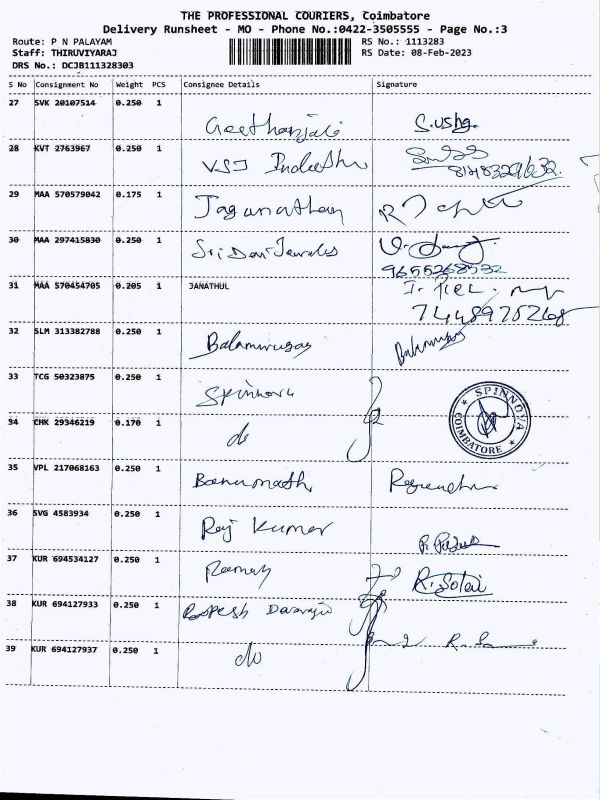 THE PROFESSIONAL COURIERS, Coimbatore
Delivery Runsheet - MO - Phone No.:0422-3505555 - Page No.:3
Route: P N PALAYAM RS No.: 1113283
Staff: THIRUVIYARAJ RS Date: 08-Feb-2023
DRS No.: DCJB111328303
S No Consignment No Weight PCS Consignee Details Signature
27 SVK 20107514 0.250 1
Geethanjali S.usha.
28 KVT 2763967 0.250 1
VSJ
29 MAA 570579042 0.175 1
Jaganathan
30 MAA 297415830 0.250 1
Sri Devi Jewels
9655268532
31 MAA 570454705 0.205 1 JANATHUL
7448975268
32 SLM 313382788 0.250 1
Balamurugan Balamurugan
33 TCG 50323875 0.250 1
Spinnova SPINNOVA COIMBATORE
34 CHK 29346219 0.170 1
do
35 VPL 217068163 0.250 1
36 SVG 4583934 0.250 1
Raj Kumar
37 KUR 694534127 0.250 1
Raman
38 KUR 694127933 0.250 1
39 KUR 694127937 0.250 1
do